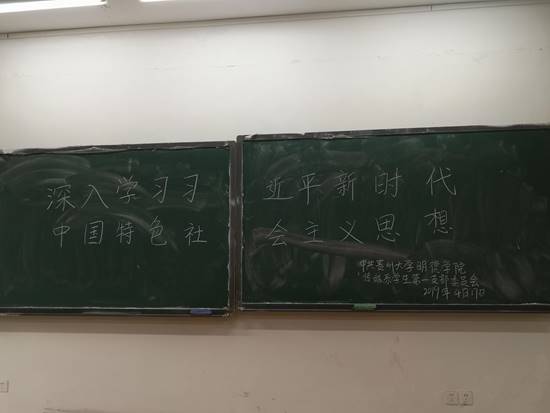 深入学习习近平新时代
中国特色社会主义思想
中共贵州大学明德学院
学生第一支部委员会
2019年4月17日